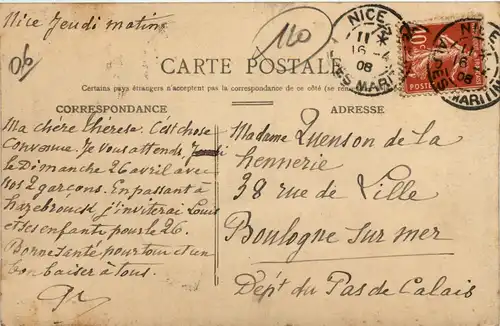 Nice Jeudi matin
06
110
NICE
11
16 - 4
08
ALPES MARITIMES
10
POSTES
NICE
11
16
08
ALPES MARITIMES
CARTE POSTALE
Certains pays étrangers n'acceptent pas la correspondance de ce côté (se
CORRESPONDANCE
ADRESSE
Ma chère Thérèse. C'est chose
Convenue. Je vous attends, Jeudi
le Dimanche 26 avril avec
vos 2 garçons. En passant à
hazebrouck j'inviterai Louis
et ses enfants pour le 26.
Bonne santé pour tous et un
bon baiser à tous.
Madame Quenson de la
hennerie
38 rue de Lille
Boulogne sur mer
Dép't du Pas de Calais